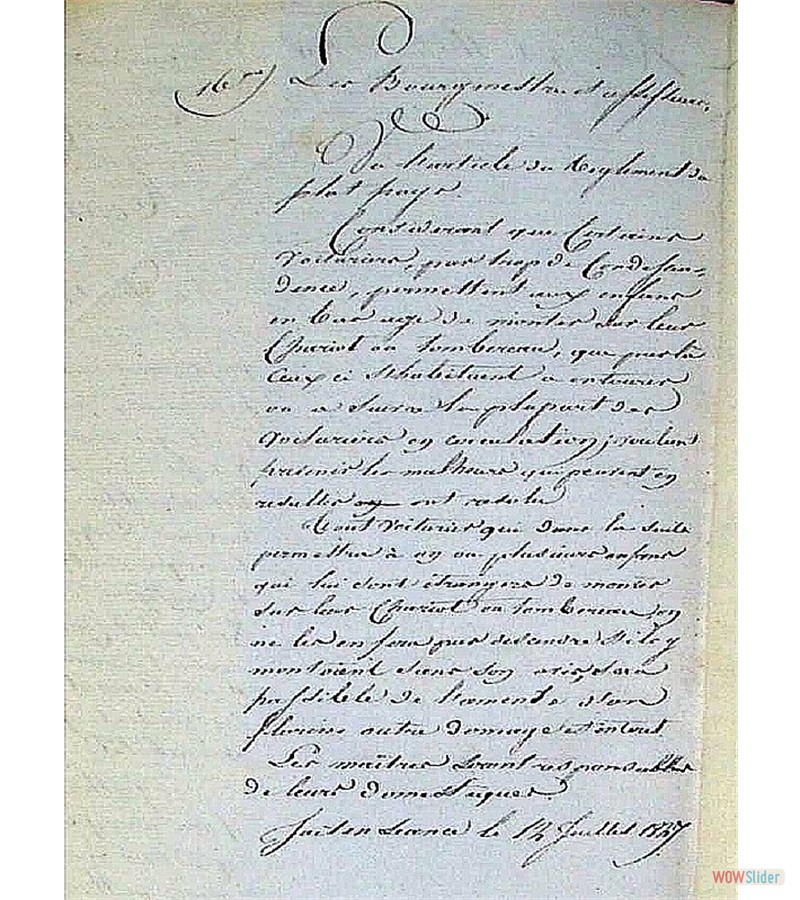 16me Les Bourgmestre et assesseurs,
Vu l'article du Reglement du
plat pays.
Considerant que Certains
voituriers, par trop de Condesan-
dence, permettent aux enfans
en bas age de monter sur leur
Chariot ou tombereau, que par là
ceux ci s'habituent a entourer
ou a suivre la plupart des
voituriers en circulation; voulant
prévenir les malheurs qui peuvent en
resulter ont resolu
Tout voiturier qui dans la suite
permettra à un ou plusieurs enfans
qui lui sont étrangers de monter
sur leur Chariot ou tombereau ou
ne les en fera pas descendre s'ils y
montoient sans son avis, sera
passible de l'amende d'un
florin outre domage et interet
Les maîtres seront responsables
de leurs domestiques.
fait en Seance le 12 Juillet 1827
WOWSlider